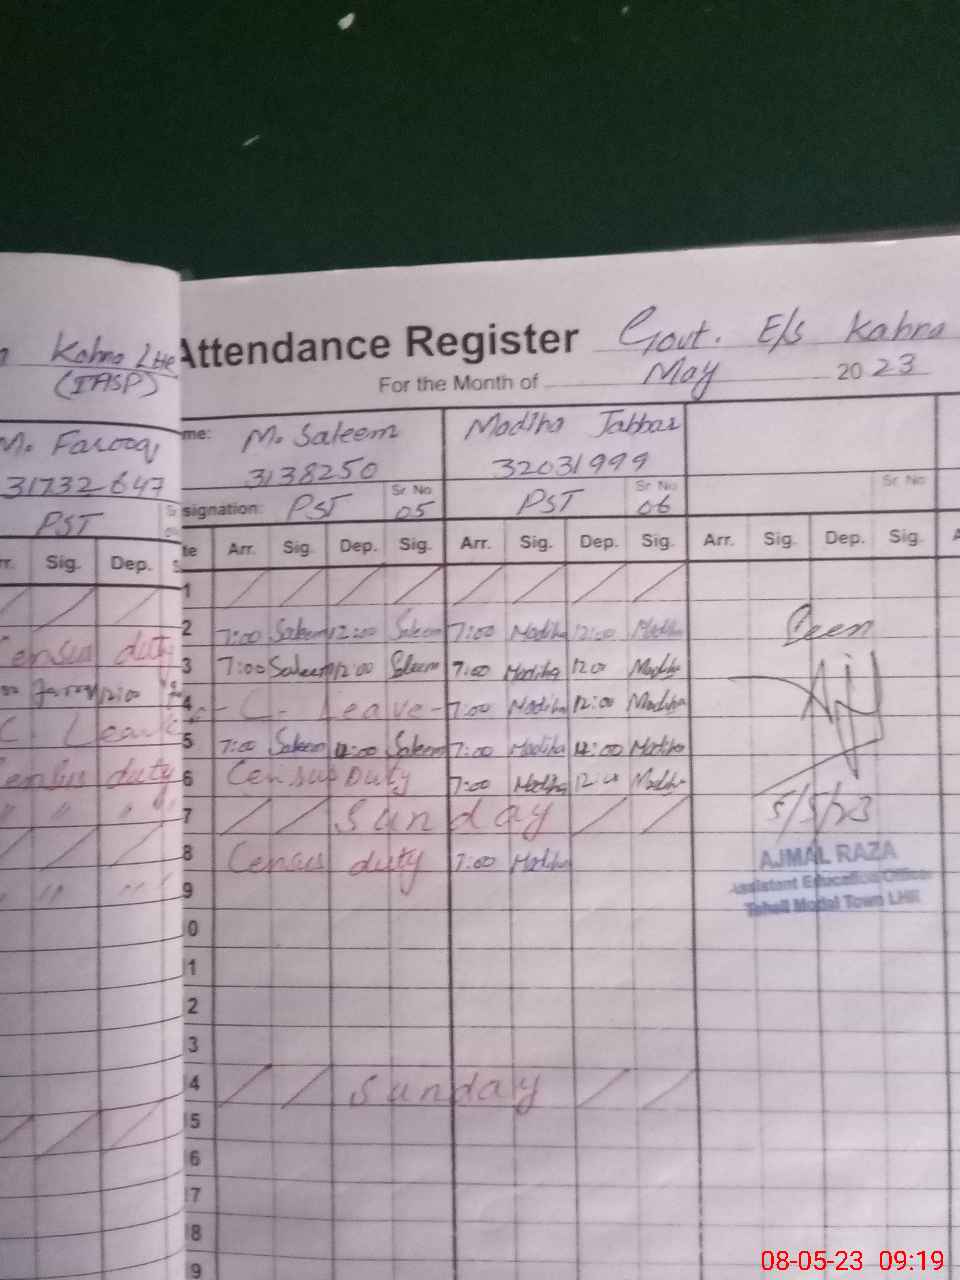 Kahna Lhr
(IASP)
M. Farooq
31732647
PST
Sig. Dep.
Census duty
Farooq 12:00
C. Leave
Census duty
" " "
Attendance Register Govt. E/s Kahna
For the Month of May 2023
me: M. Saleem Madiha Jabbar
3138250 32031999
Sr. No Sr. No Sr. No
signation: PST 05 PST 06
te Arr. Sig. Dep. Sig. Arr. Sig. Dep. Sig. Arr. Sig. Dep. Sig.
1
2 7:00 Saleem 12:00 Saleem 7:00 Madiha 12:00 Madiha Seen
3 7:00 Saleem 12:00 Saleem 7:00 Madiha 12:00 Madiha
4 - C. Leave - 7:00 Madiha 12:00 Madiha
5 7:00 Saleem Saleem 7:00 Madiha Madiha
6 Census Duty 7:00 Madiha 12:00 Madiha
7 Sunday 5/5/23
8 Census duty 7:00 Madiha
AJMAL RAZA
9 Assistant Education Officer
Tehsil Model Town LHR
0
1
2
3
4 Sunday
5
6
7
8
9
08-05-23 09:19